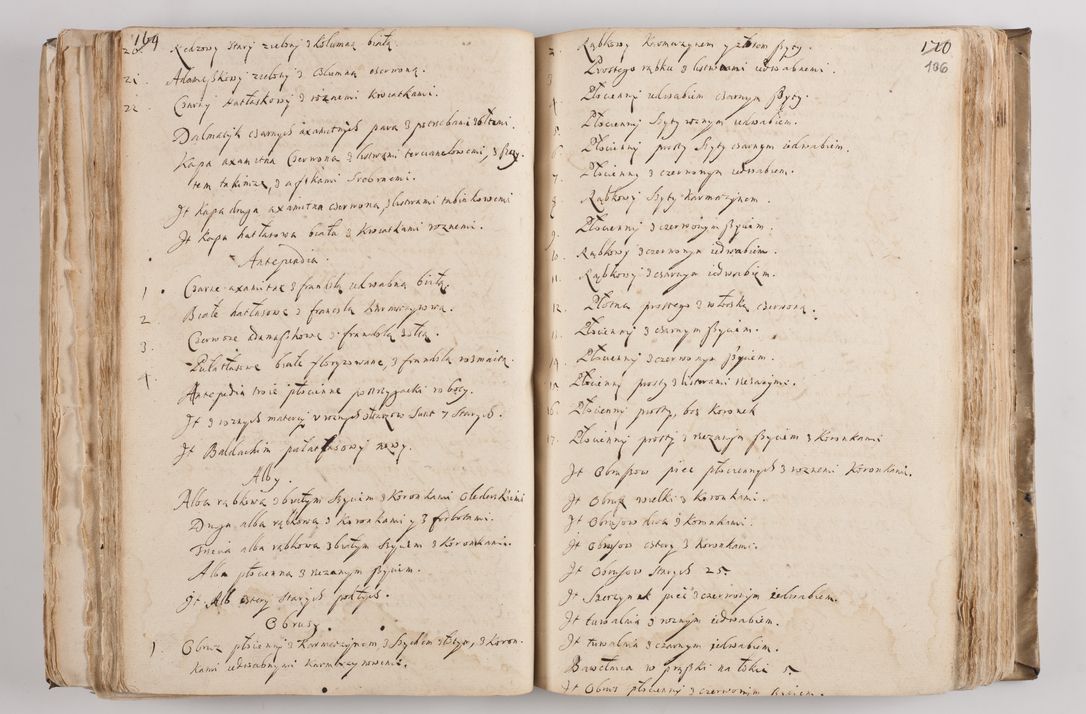 169
20. Rydzowy stary zielony z kolumną białą.
21. Adamaszkowy zielony z columną czerwoną.
22. Czarny hatłaskowy z roznemi kwiatkami.
Dalmatyk czarnych axamitnych para z potrzebami żołtemi.
Kapa axamitna czerwona z listwami tercianelowemi, z
tem takimże, z srebrnemi.
Jt Kapa druga axamitna czerwona, z listwami tabinkowemi
Jt Kapa hatłasowa biała z kwiatkami roznemi.
Antependia.
1 Czarne axamitne z frandzlą iedwabną białą.
2 Białe hatłasowe z frandzlą karmazynową.
3. Czerwone Damaszkowe z frandzlą żołtą.
4 Pułatłasowe białe floryzowane, z frandzlą rozmaitą.
Antepedia troie płocienne roboty.
Jt z roznych materyj v roznych ołtarzow Sunt 7 Starych.
Jt Baldachim pułatłasowy nowy.
Alby.
Alba rąbkowa z białym szyciem z koronkami Olederskiemi
Druga alba rąbkowa z koronkami y z forbotami.
Trzecia alba rąbkowa z białym szyciem z koronkami.
Alba płocienna z rzezanym szyciem.
Jt Alb cztery starych podłych.
Obrusy.
1. Obrus płocienny z karmazynem z złotym, z koron-
kami iedwabnymi karmazynowemi.
170
196
2. Rąbkowy karmazynem y złotem szyty.
3 Prostego rąbku z listwami iedwabnemi.
4. Płocienny iedwabiem czarnym szyty.
5. Płocienny szyty roznym iedwabiem.
6. Płocienny prosty szyty czarnym iedwabiem.
7. Płocienny z czerwonym iedwabiem.
8. Rąbkowy szyty karmazynem.
9. Płocienny z czerwonym szyciem.
10. Rąbkowy z czerwonym iedwabiem.
11. Rąbkowy z czarnym iedwabiem.
12. Płotna prostego z włoską czerwoną.
13. Płocienny z czarnym szyciem.
14. Płocienny z czerwonym szyciem.
15. Płocienny prosty z listwami rzezanymi.
16. Płocienny prosty, bez koronek
17. Płocienny prosty z rzezanym szyciem z koronkami
Jt Obrusow pięć płociennych z roznemi koronkami.
Jt Obrus wielki z koronkami.
Jt Obrusow dwa z koronkami.
Jt Obrusow cztery z koronkami.
Jt Obrusow starych 25.
Jt Szerzynek pięć z czerwonym iedwabiem.
Jt tuwalnia z roznym iedwabiem.
Jt tuwalnia z czarnym iedwabiem.
Bawełnica w prążki na tskie 5.
Jt Obrus płocienny z czerwonym szyciem.